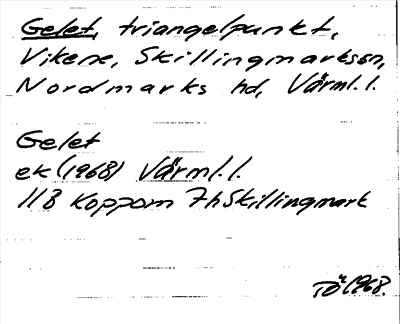 Gelet, triangelpunkt,
Vikene, Skillingmarkssn,
Nordmarks hd, Värml. l.
Gelet
ek (1968) Värml. l.
11B Koppom 7h Skillingmark
TÖ 1968.